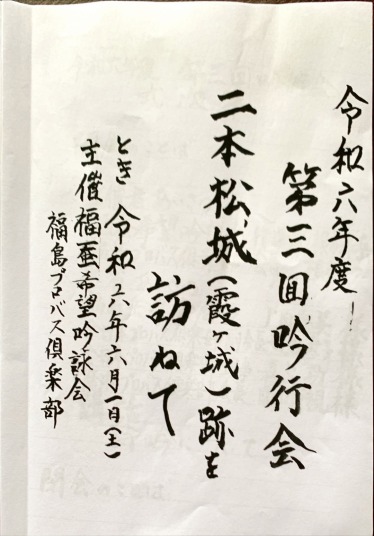 令和六年度
第三回吟行会
二本松城(霞ヶ城)跡を
訪ねて
とき 令和六年六月一日(土)
主催福亜希望吟詠会
福島プロバス倶楽部